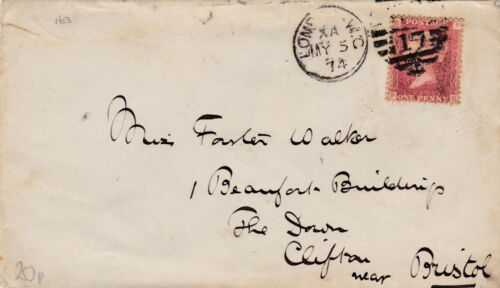 163
LONDON W.C
XA
MY 5
74
17
POSTAGE
ONE PENNY
Miss Forster Walker
1 Beaufort Buildings
The Down
Clifton
near Bristol
20p